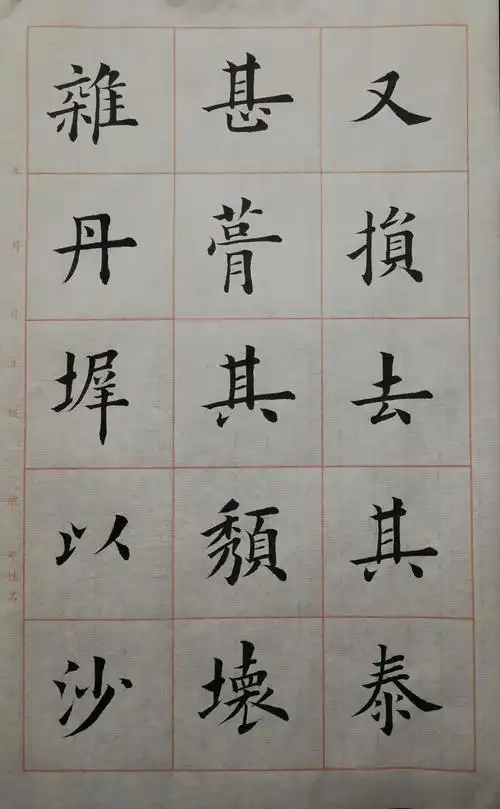 又損去其泰
甚葺其頽壞
雜丹墀以沙